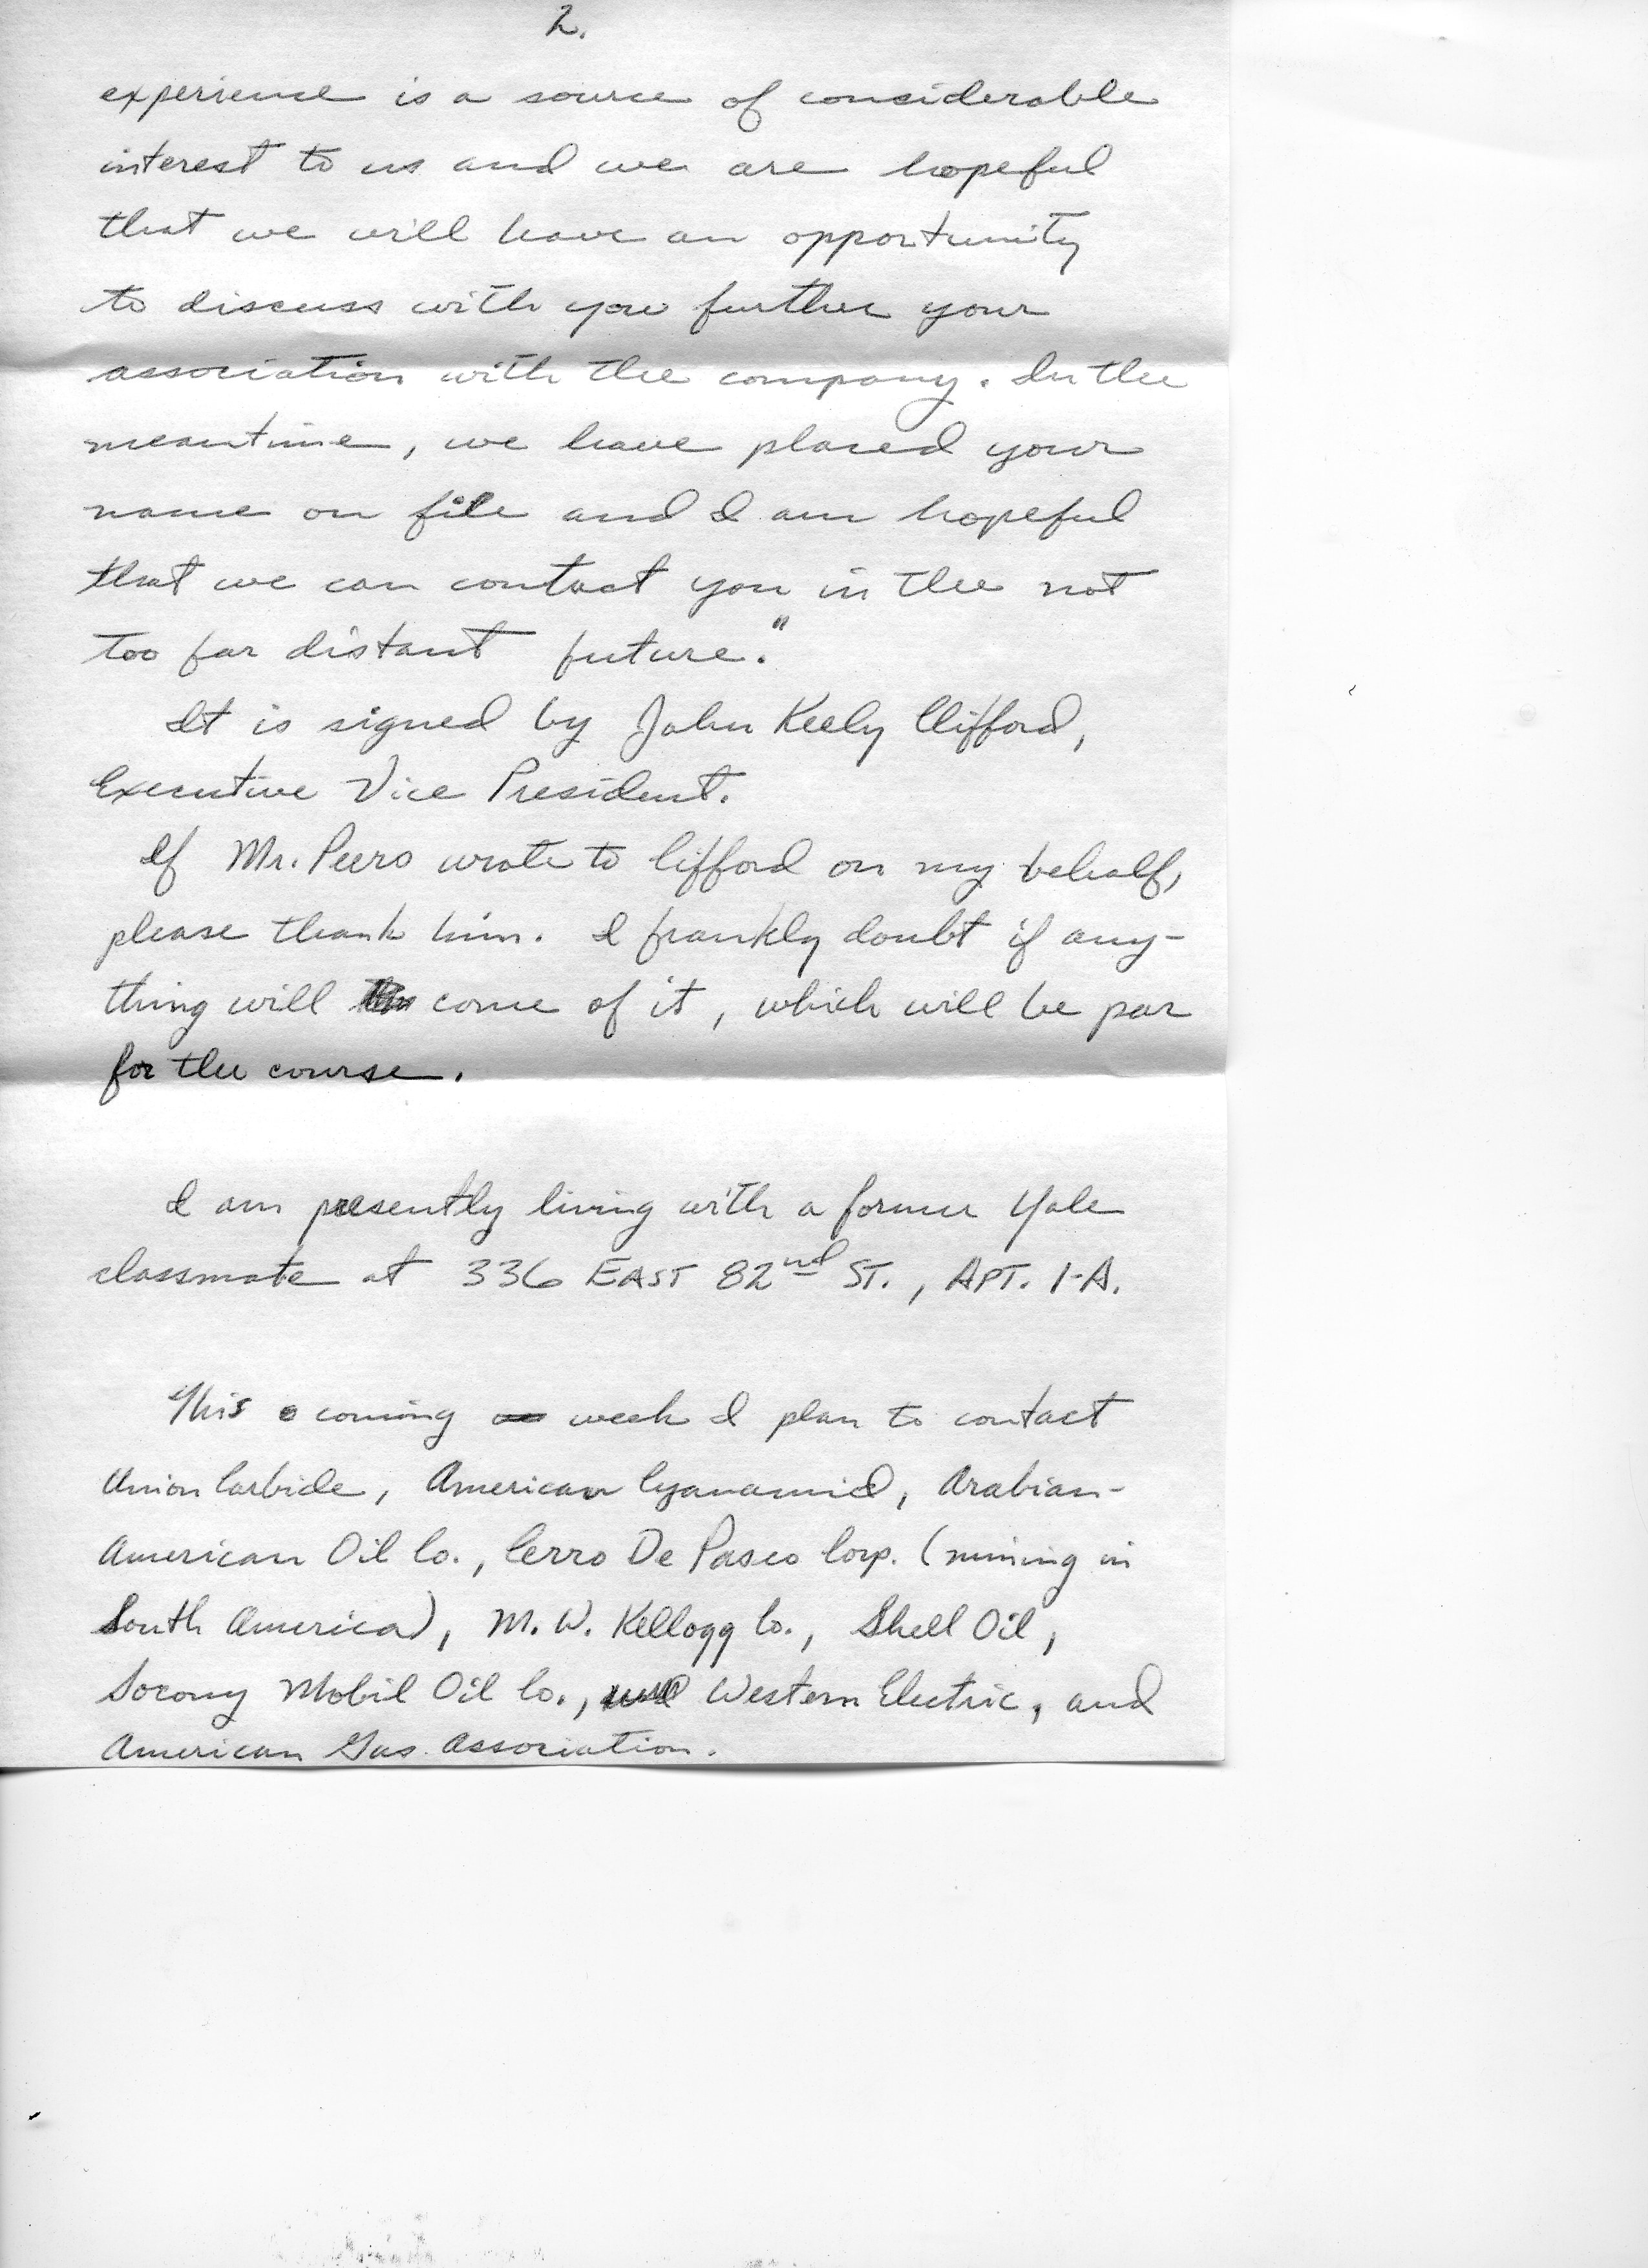 2.
experience is a source of considerable
interest to us and we are hopeful
that we will have an opportunity
to discuss with you further your
association with the company. In the
meantime, we have placed your
name on file and I am hopeful
that we can contact you in the not
too far distant future."
It is signed by John Keely Clifford,
Executive Vice President.
If Mr. Peers wrote to Cifford on my behalf,
please thank him. I frankly doubt if any-
thing will come of it, which will be par
for the course.
I am presently living with a former Yale
classmate at 336 EAST 82nd ST., APT. 1-A.
This coming week I plan to contact
Union Carbide, American Cyanamid, Arabian-
American Oil Co., Cerro De Pasco Corp. (mining in
South America), M. W. Kellogg Co., Shell Oil,
Socony Mobil Oil Co., Western Electric, and
American Gas Association.